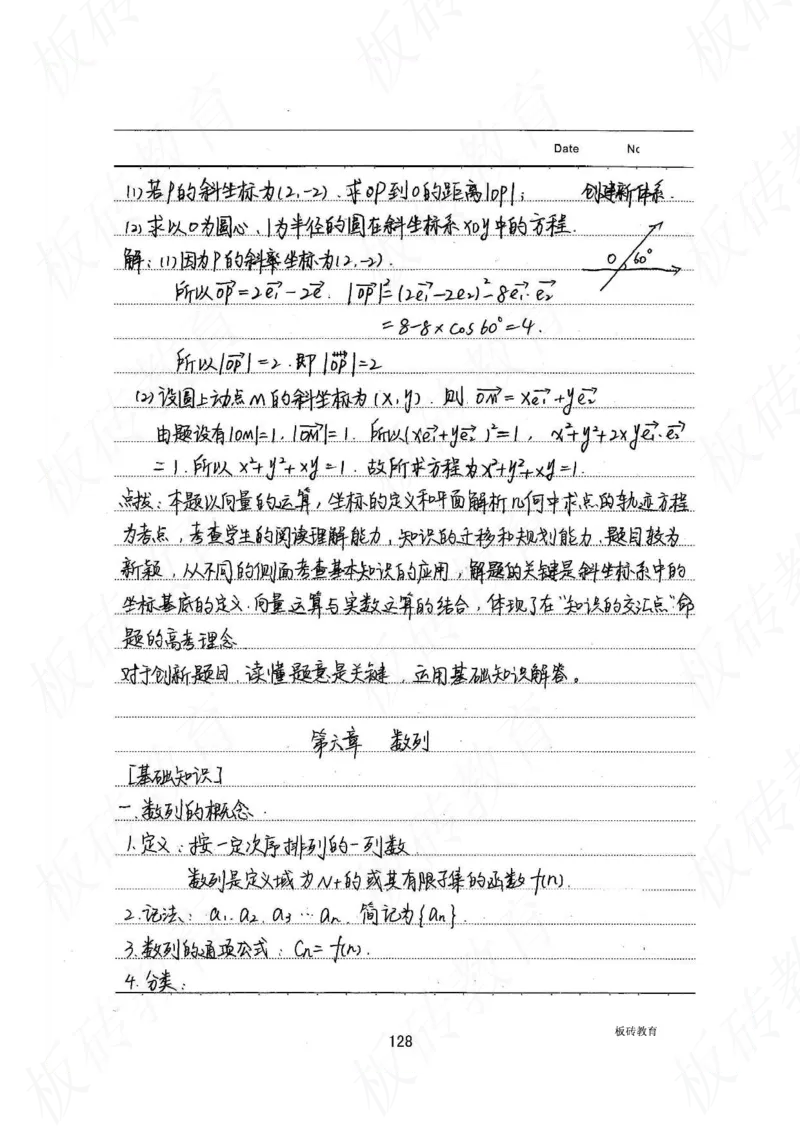 Date No
(1)若P的斜坐标为(2,-2),求OP到O的距离|OP|; 创建新体系.
(2)求以O为圆心,1为半径的圆在斜坐标系XOY中的方程.
O 60°
解:(1)因为P的斜率坐标为(2,-2).
所以\vec{OP}=2\vec{e_1}-2\vec{e}. |\vec{OP}|²=(2\vec{e_1}-2e_2)²-8\vec{e_1}·\vec{e_2}
=8-8×cos60°=4.
所以|\vec{OP}|=2.即|\vec{OP}|=2
(2)设圆上动点M的斜坐标为(X,y).则\vec{OM}=X\vec{e_1}+y\vec{e_2}
由题设有|OM|=1,|\vec{OM}|=1.所以(X\vec{e_1}+y\vec{e_2})²=1, x²+y²+2xy\vec{e_1}·\vec{e_2}
=1.所以x²+y²+xy=1.故所求方程为x²+y²+xy=1.
点拨:本题以向量的运算,坐标的定义和平面解析几何中求点的轨迹方程
为考点,考查学生的阅读理解能力,知识的迁移和规划能力.题目较为
新颖,从不同的侧面考查基本知识的应用,解题的关键是斜坐标系中的
坐标基底的定义.向量运算与实数运算的结合,体现了在"知识的交汇点"命
题的高考理念.
对于创新题目,读懂题意是关键,运用基础知识解答。
第六章 数列
[基础知识]
一.数列的概念.
1.定义:按一定次序排列的一列数
数列是定义域为N+的或其有限子集的函数f(n).
2.记法:a₁.a₂.a₃…aₙ.简记为{aₙ}.
3.数列的通项公式:Cₙ=f(n).
4.分类:
板砖教育
128